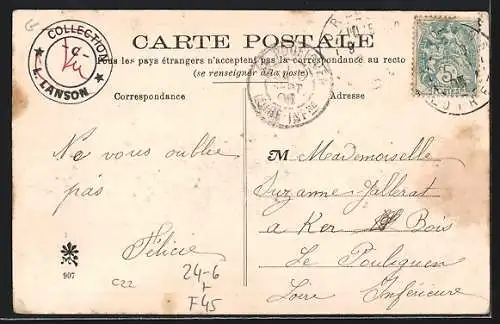 COLLECTION
L. LANSON
CARTE POSTALE
Tous les pays étrangers n'acceptent pas la correspondance au recto
(se renseigner à la poste)
Correspondance
Adresse
Ne vous oublie
pas
Félicie
M Mademoiselle
Suzanne Vallerat
a Ker Bois
Le Pouliguen
Loire Inférieure
907
C22
24-6
+
F45